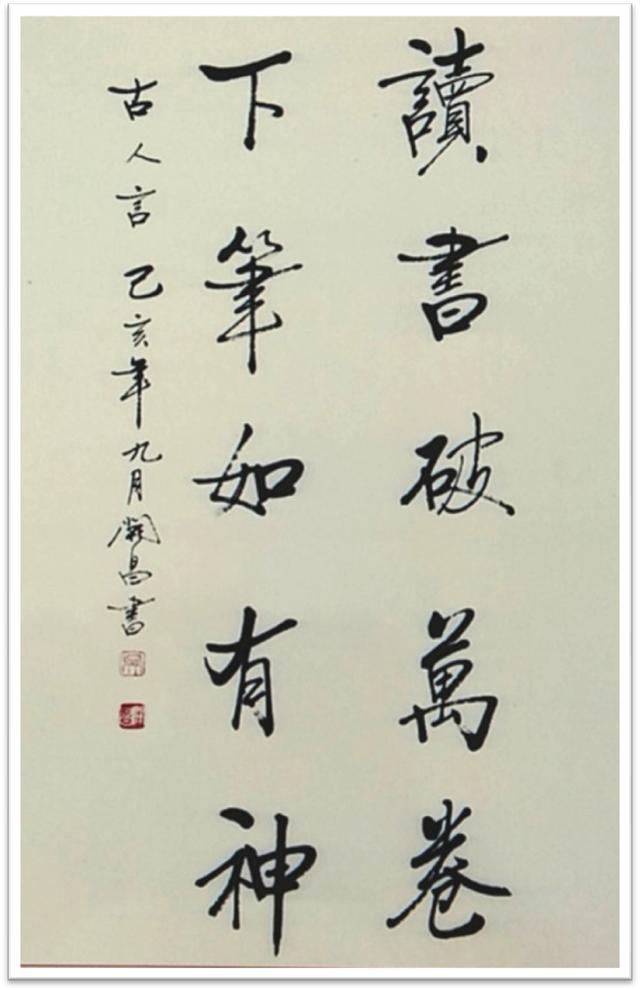 讀書破萬卷
下筆如有神
古人言 己亥年九月開昌書